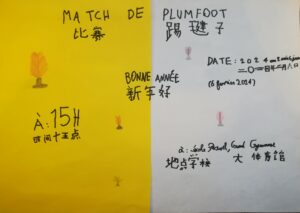 MATCH DE PLUMFOOT
比赛 踢毽子
DATE: 2024
二〇二四年二月六日
(6 février 2024)
BONNE ANNÉE
新年好
À: 15H
时间十五点
à: École Grand Gymnase
地点学校 大体育馆